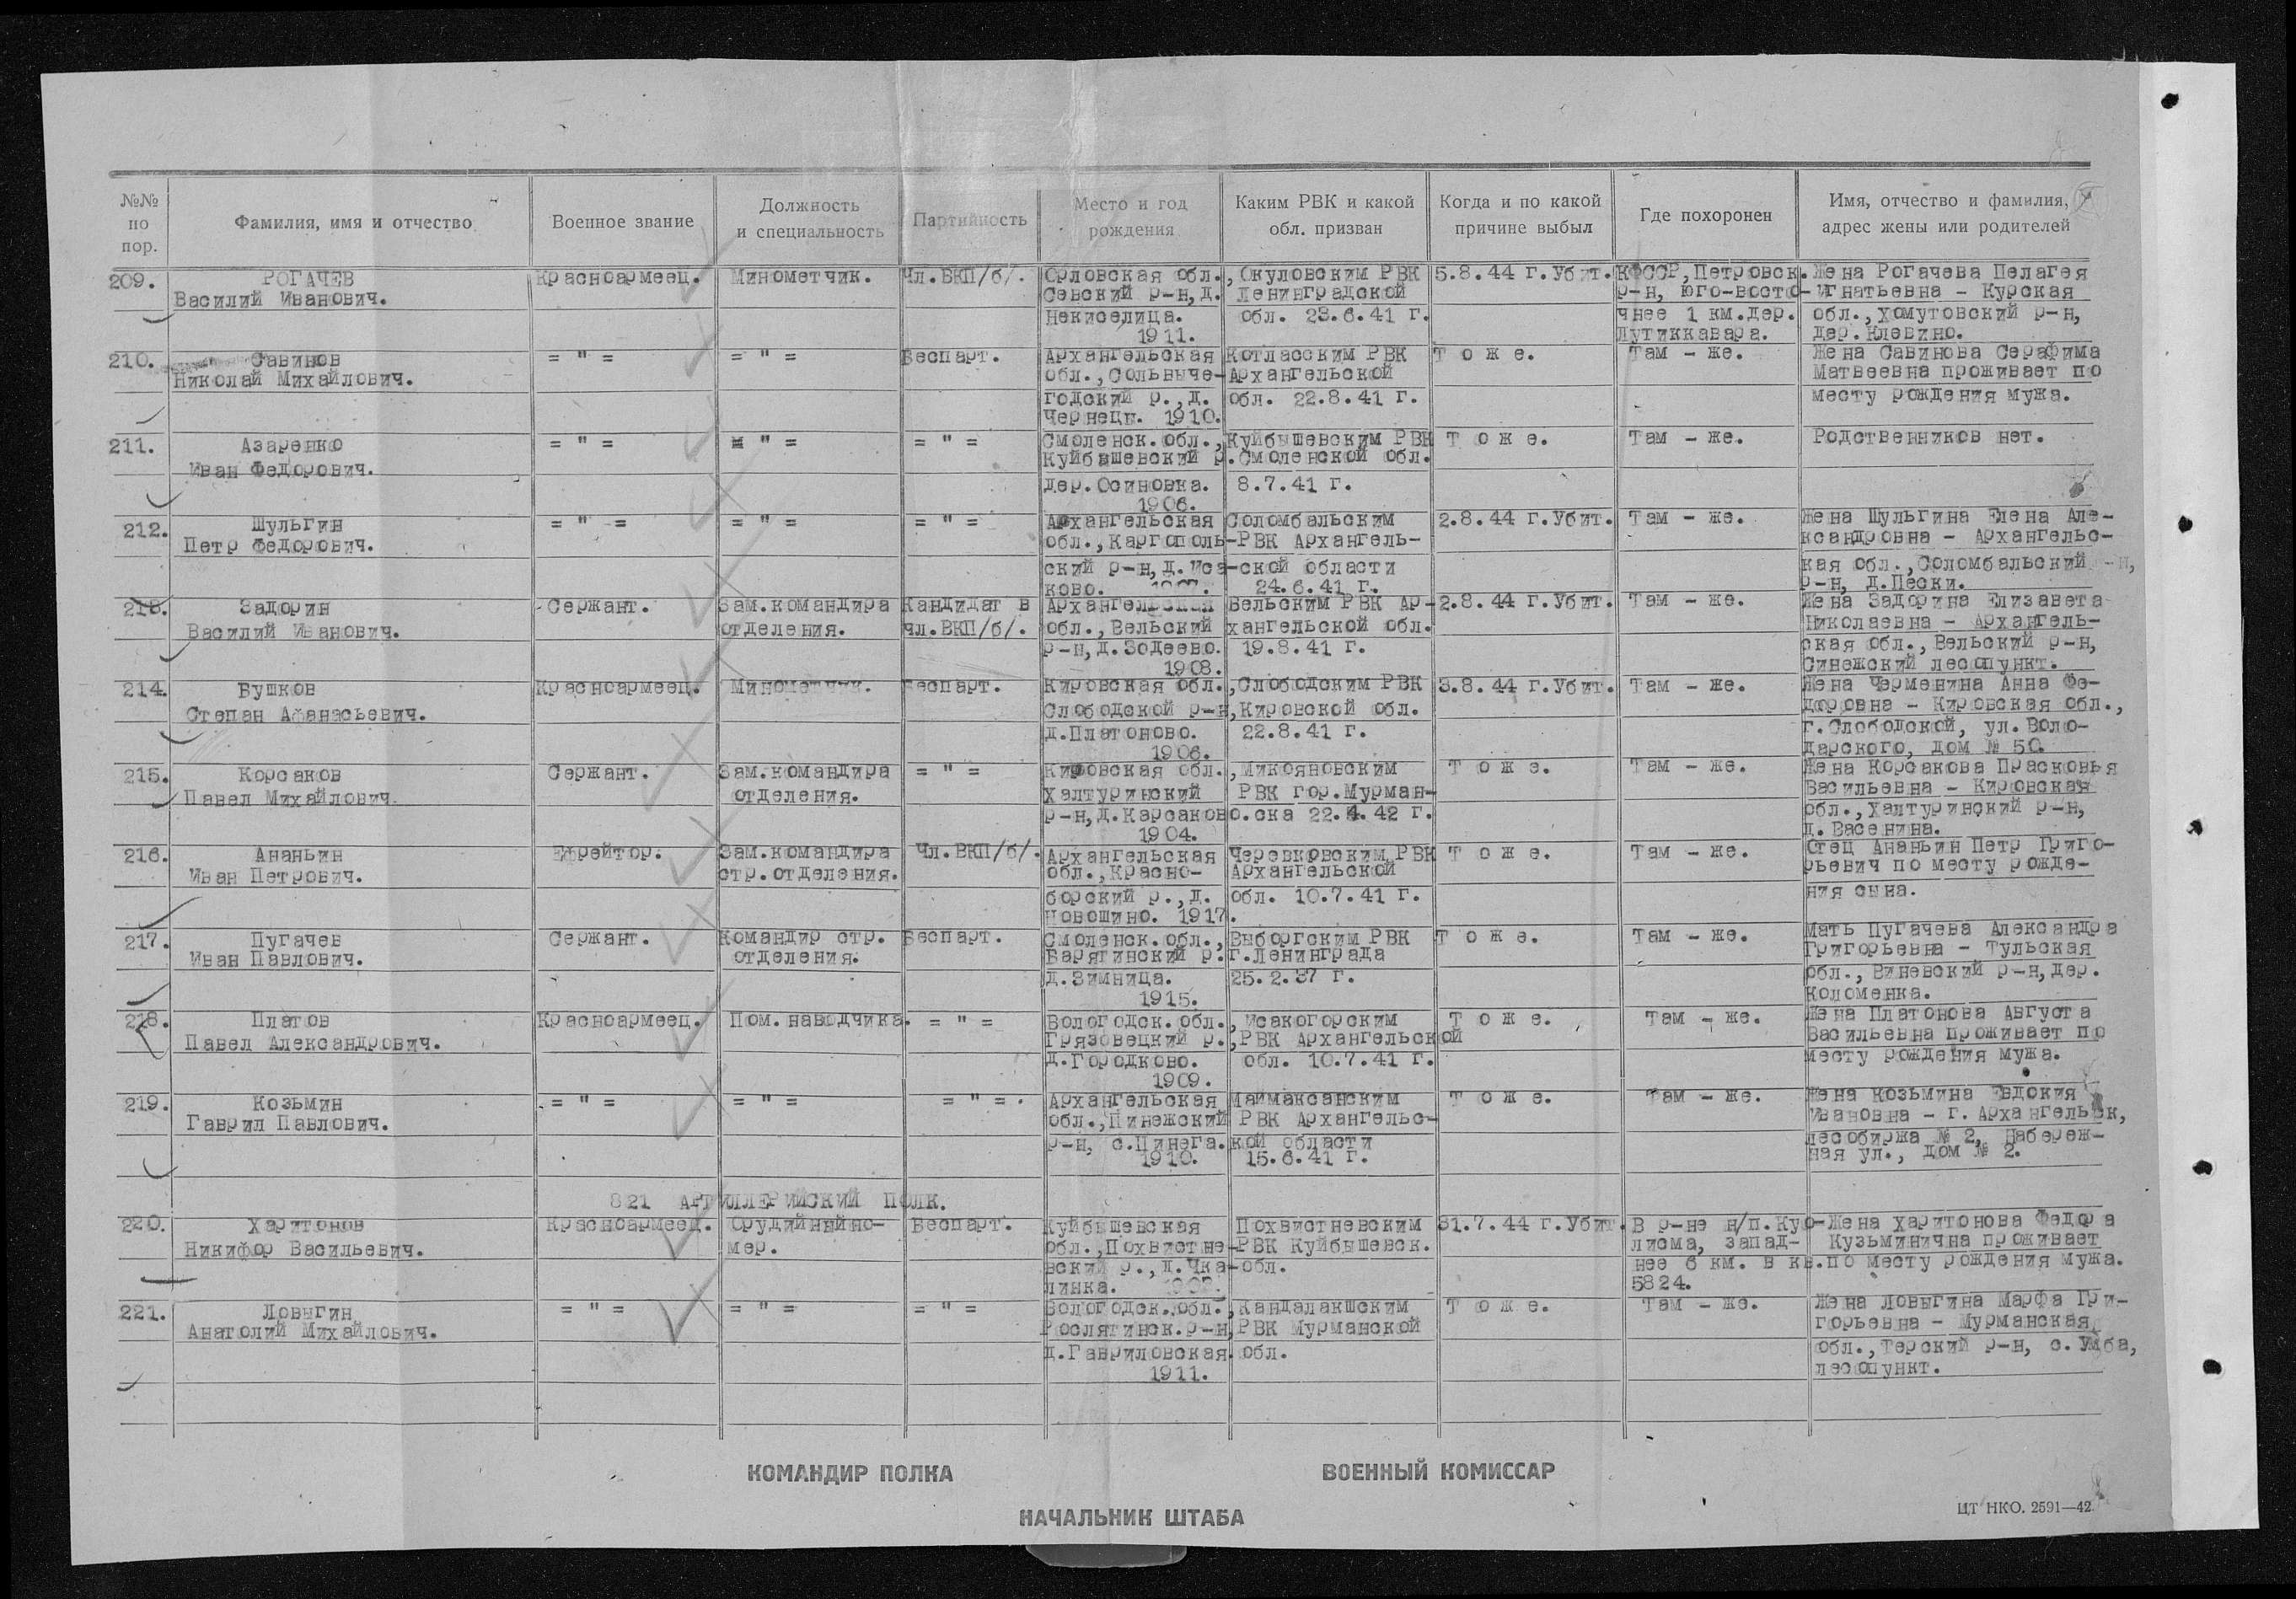 №№ по пор.
Фамилия, имя и отчество
Военное звание
Должность и специальность
Партийность
Место и год рождения
Каким РВК и какой обл. призван
Когда и по какой причине выбыл
Где похоронен
Имя, отчество и фамилия, адрес жены или родителей
209. РОГАЧЕВ Красноармеец. Минометчик. Чл.ВКП/б/. Орловская обл., Окуловским РВК 5.8.44 г.Убит. КФССР,Петровск. Жена Рогачева Пелагея
Василий Иванович. Севский р-н,д. Ленинградской р-н, юго-восто- Игнатьевна - Курская
Некиселица. обл. 23.6.41 г. чнее 1 км.дер. обл.,Хомутовский р-н,
1911. Лутиккавара. дер.Клевино.
210. Савинов = " = = " = Беспарт. Архангельская Котласским РВК Т о ж е. Там - же. Жена Савинова Серафима
Николай Михайлович. обл.,Сольвыче- Архангельской Матвеевна проживает по
годский р.,д. обл. 22.8.41 г. месту рождения мужа.
Чернецы. 1910.
211. Азаренко = " = = " = = " = Смоленск.обл., Куйбышевским РВК Т о ж е. Там - же. Родственников нет.
Иван Федорович. Куйбышевский р. Смоленской обл.
дер.Осиновка. 8.7.41 г.
1906.
212. Шульгин = " = = " = = " = Архангельская Соломбальским 2.8.44 г.Убит. Там - же. Жена Шульгина Елена Але-
Петр Федорович. обл.,Каргополь- РВК Архангель- ксандровна - Архангельс-
ский р-н,д.Иса- ской области кая обл.,Соломбальский р-н,
ково. 24.6.41 г. р-н, д.Пески.
213. Задорин Сержант. Зам.командира Кандидат в Архангельская Вельским РВК Ар- 2.8.44 г.Убит. Там - же. Жена Задорина Елизавета
Василий Иванович. отделения. чл.ВКП/б/. обл.,Вельский хангельской обл. Николаевна - Архангель-
р-н,д.Зодеево. 19.8.41 г. ская обл.,Вельский р-н,
1908. Синежский лесопункт.
214. Бушков Красноармеец. Минометчик. Беспарт. Кировская обл., Слободским РВК 3.8.44 г.Убит. Там - же. Жена Черменина Анна Фе-
Степан Афанасьевич. Слободской р-н, Кировской обл. доровна - Кировская обл.,
д.Платоново. 22.8.41 г. г.Слободской, ул.Воло-
1906. дарского, дом № 50.
215. Корсаков Сержант. Зам.командира = " = Кировская обл., Микояновским Т о ж е. Там - же. Жена Корсакова Прасковья
Павел Михайлович. отделения. Халтуринский РВК гор.Мурман- Васильевна - Кировская
р-н,д.Карсаково. ска 22.4.42 г. обл.,Халтуринский р-н,
1904. д.Васенина.
216. Ананьин Ефрейтор. Зам.командира Чл.ВКП/б/. Архангельская Черевковским РВК Т о ж е. Там - же. Отец Ананьин Петр Григо-
Иван Петрович. стр.отделения. обл.,Красно- Архангельской рьевич по месту рожде-
борский р.,д. обл. 10.7.41 г. ния сына.
Новошино. 1917.
217. Пугачев Сержант. Командир стр. Беспарт. Смоленск.обл., Выборгским РВК Т о ж е. Там - же. Мать Пугачева Александра
Иван Павлович. отделения. Барятинский р. г.Ленинграда Григорьевна - Тульская
д.Зимница. 25.2.37 г. обл.,Виневский р-н,дер.
1915. Коломенка.
218. Платов Красноармеец. Пом.наводчика. = " = Вологодск.обл., Исакогорским Т о ж е. Там - же. Жена Платонова Августа
Павел Александрович. Грязовецкий р., РВК Архангельской Васильевна проживает по
д.Городково. обл. 10.7.41 г. месту рождения мужа.
1909.
219. Козьмин = " = = " = = " = . Архангельская Маймаксанским Т о ж е. Там - же. Жена Козьмина Евдокия
Гаврил Павлович. обл.,Пинежский РВК Архангельс- Ивановна - г. Архангельск,
р-н, с.Пинега. кой области лесобиржа № 2, Набереж-
1910. 15.6.41 г. ная ул., дом № 2.
821 АРТИЛЛЕРИЙСКИЙ ПОЛК.
220. Харитонов Красноармеец. Орудийный но- Беспарт. Куйбышевская Похвистневским 31.7.44 г.Убит. В р-не н/п.Куо- Жена Харитонова Федора
Никифор Васильевич. мер. обл.,Похвистне- РВК Куйбышевск. лисма, запад- Кузьминична проживает
вский р.,д.Чка- обл. нее 6 км. в кв. по месту рождения мужа.
линка. 5824.
221. Ловыгин = " = = " = = " = Вологодск.обл., Кандалакшским Т о ж е. Там - же. Жена Ловыгина Марфа Гри-
Анатолий Михайлович. Рослятинск.р-н, РВК Мурманской горьевна - Мурманская
д.Гавриловская. обл. обл.,Терский р-н, с.Умба,
1911. лесопункт.
КОМАНДИР ПОЛКА ВОЕННЫЙ КОМИССАР
НАЧАЛЬНИК ШТАБА
ЦТ НКО. 2591—42.